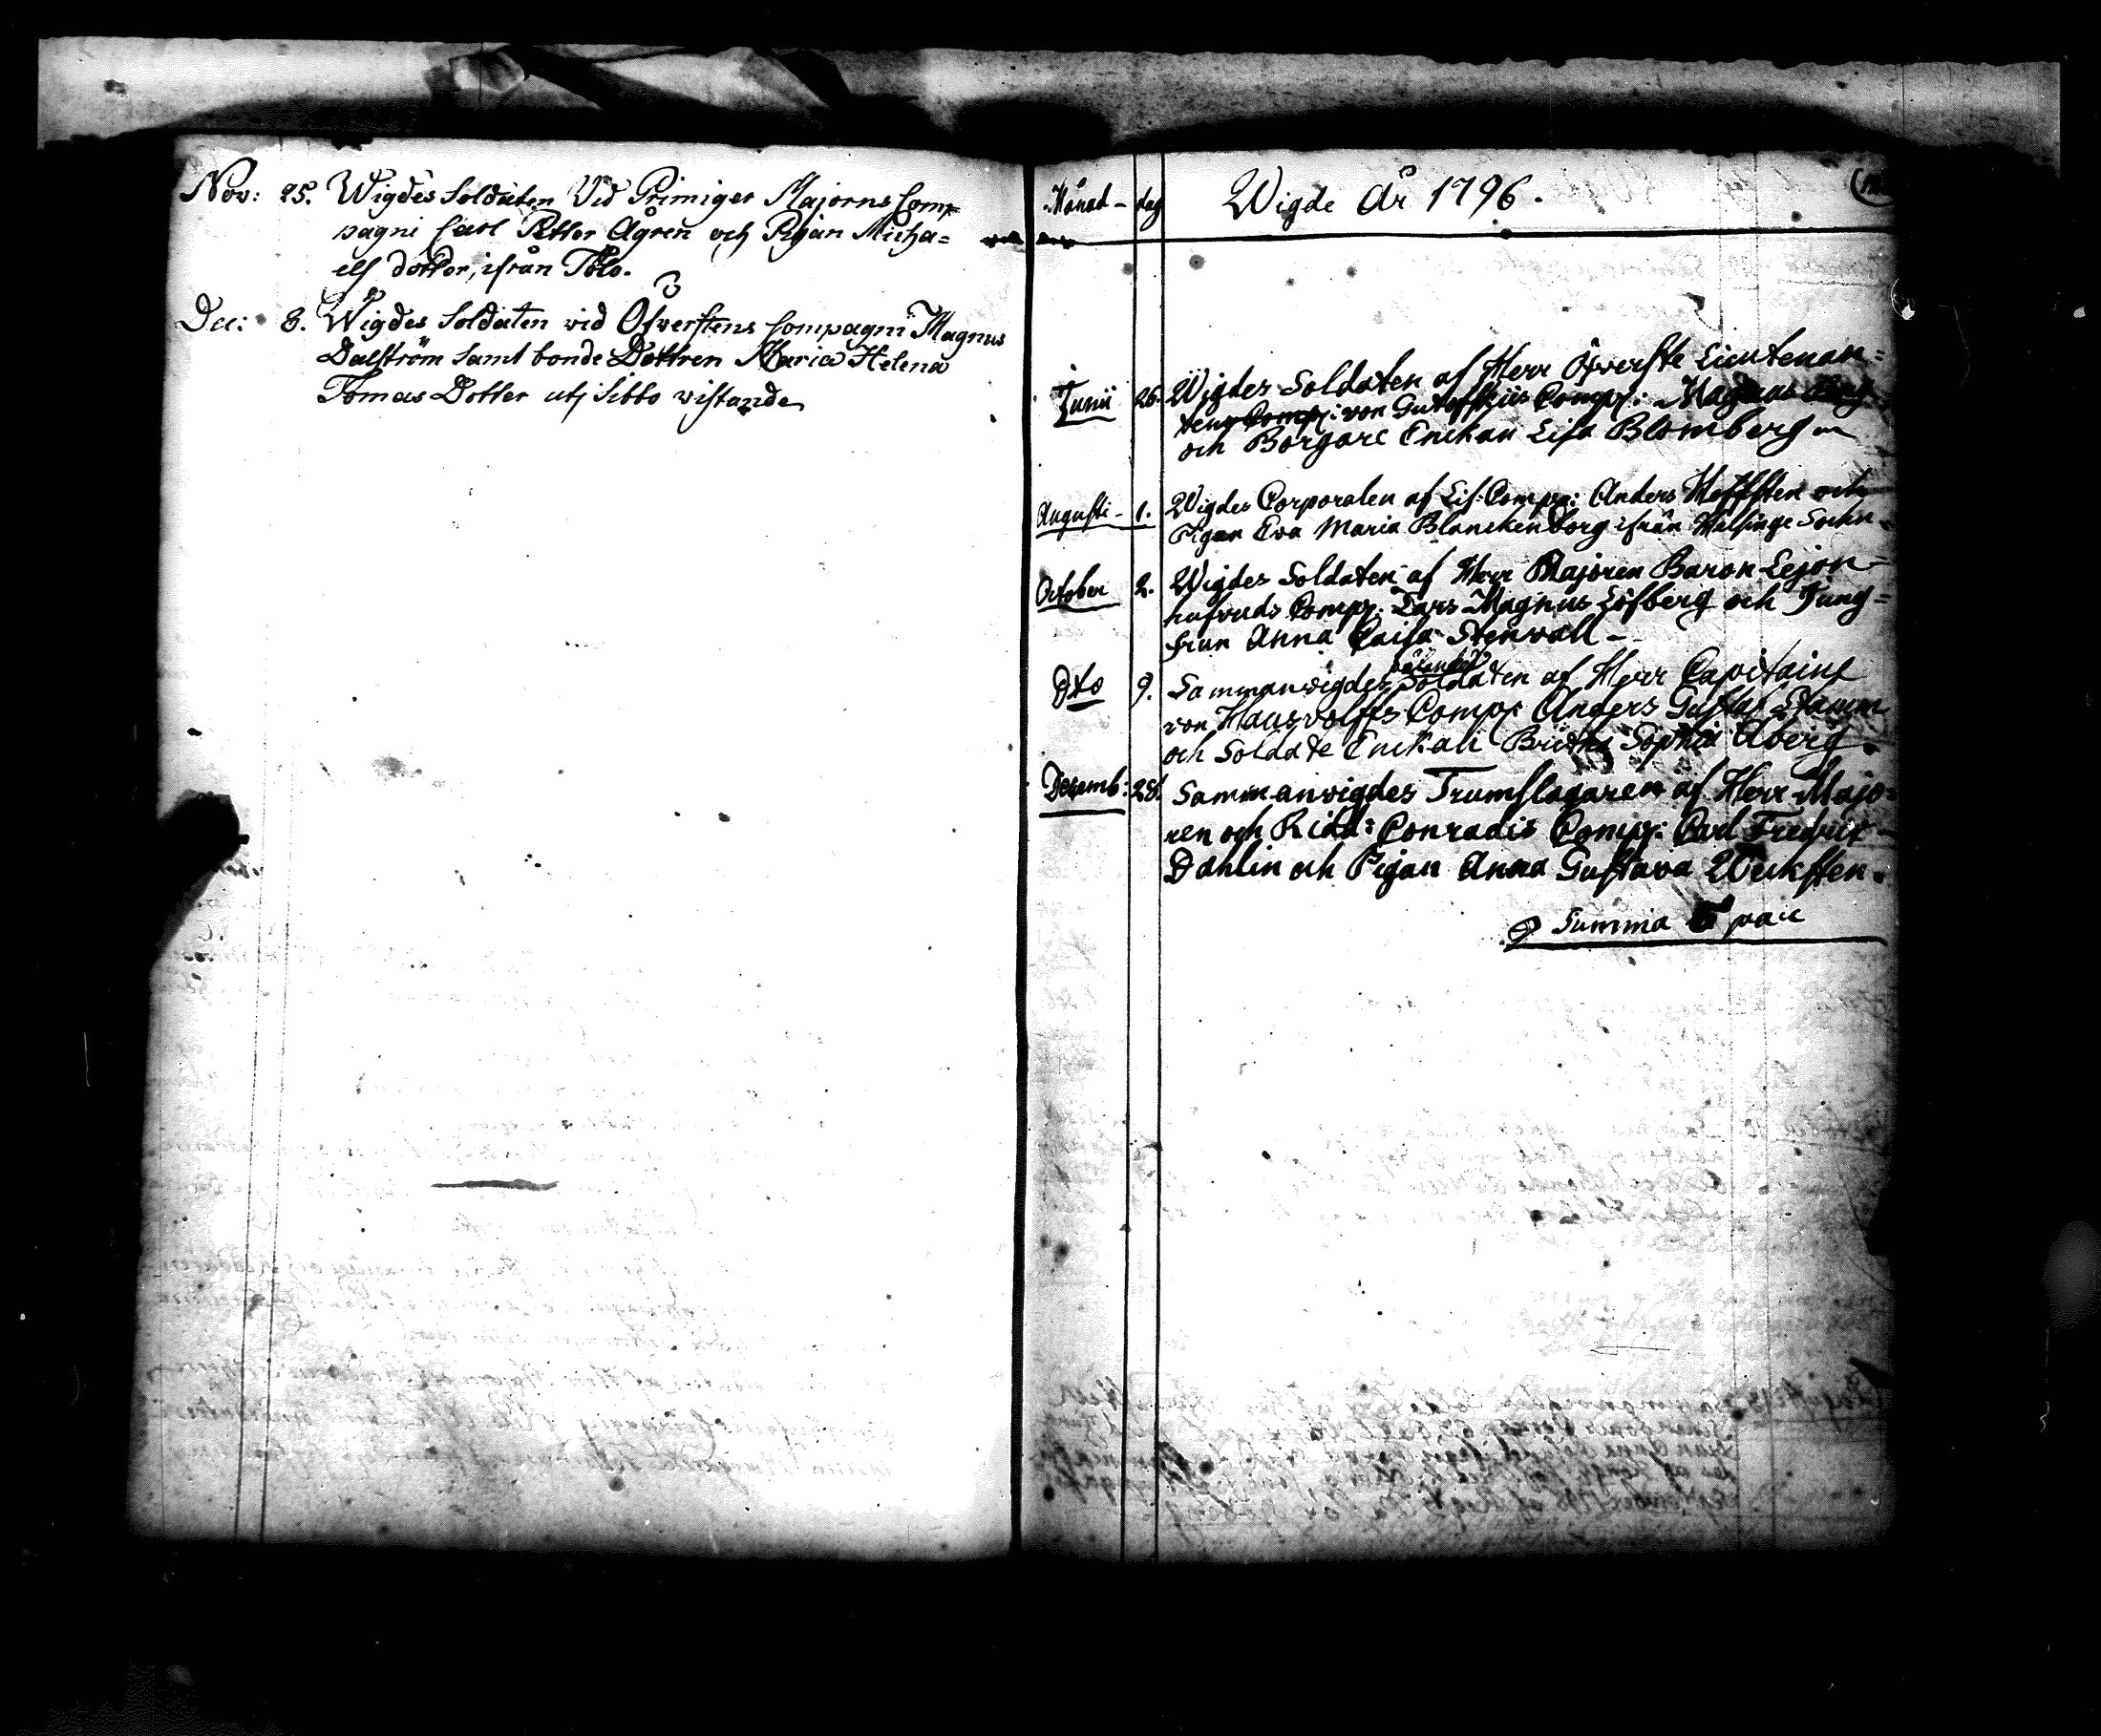 Nov: 25. Wigdes Soldaten Vid Primiger Majorns Com-
pagni Carl Petter Ågren och Pigan Micha=
els dotter, ifrån Tölö.
Dec: 8. Wigdes Soldaten vid Öfwerstens Compagni Magnus
Dalström samt bonde Dottren Maria Helena
Tomas Dotter utj Sibbo wistande
Månad - dag Wigde År 1796.
Junii 26. Wigdes Soldaten af Herr Öfverste Lieutenan=
tens Comp: von Gutoffskiis Comp: Magnus
och Borgare Enckan Lisa Blomberg
Augusti - 1. Wigdes Corporalen af Lif. Comp: Anders Hoffsten och
Pigan Eva Maria Blanckenborg ifrån Helsinge Sochn.
October 2. Wigdes Soldaten af Herr Majoren Baron Lejon=
hufvuds Comp: Lars Magnus Löfberg och Jung=
frun Anna Caisa Stenvall -
Dto 9. Sammanvigdes Soldaten af Herr Capitaine
von Hausvolffs Comp: Anders Gustaf Stamm
och Soldate Enckan Britha Sophia Åberg.
Decemb: 28. Sammanvigdes Trumslagaren af Herr Majo=
ren och Ridd: Conradis Comp: Carl Fredric
Dahlin och Pigan Anna Gustava Weksten.
Summa 5 par